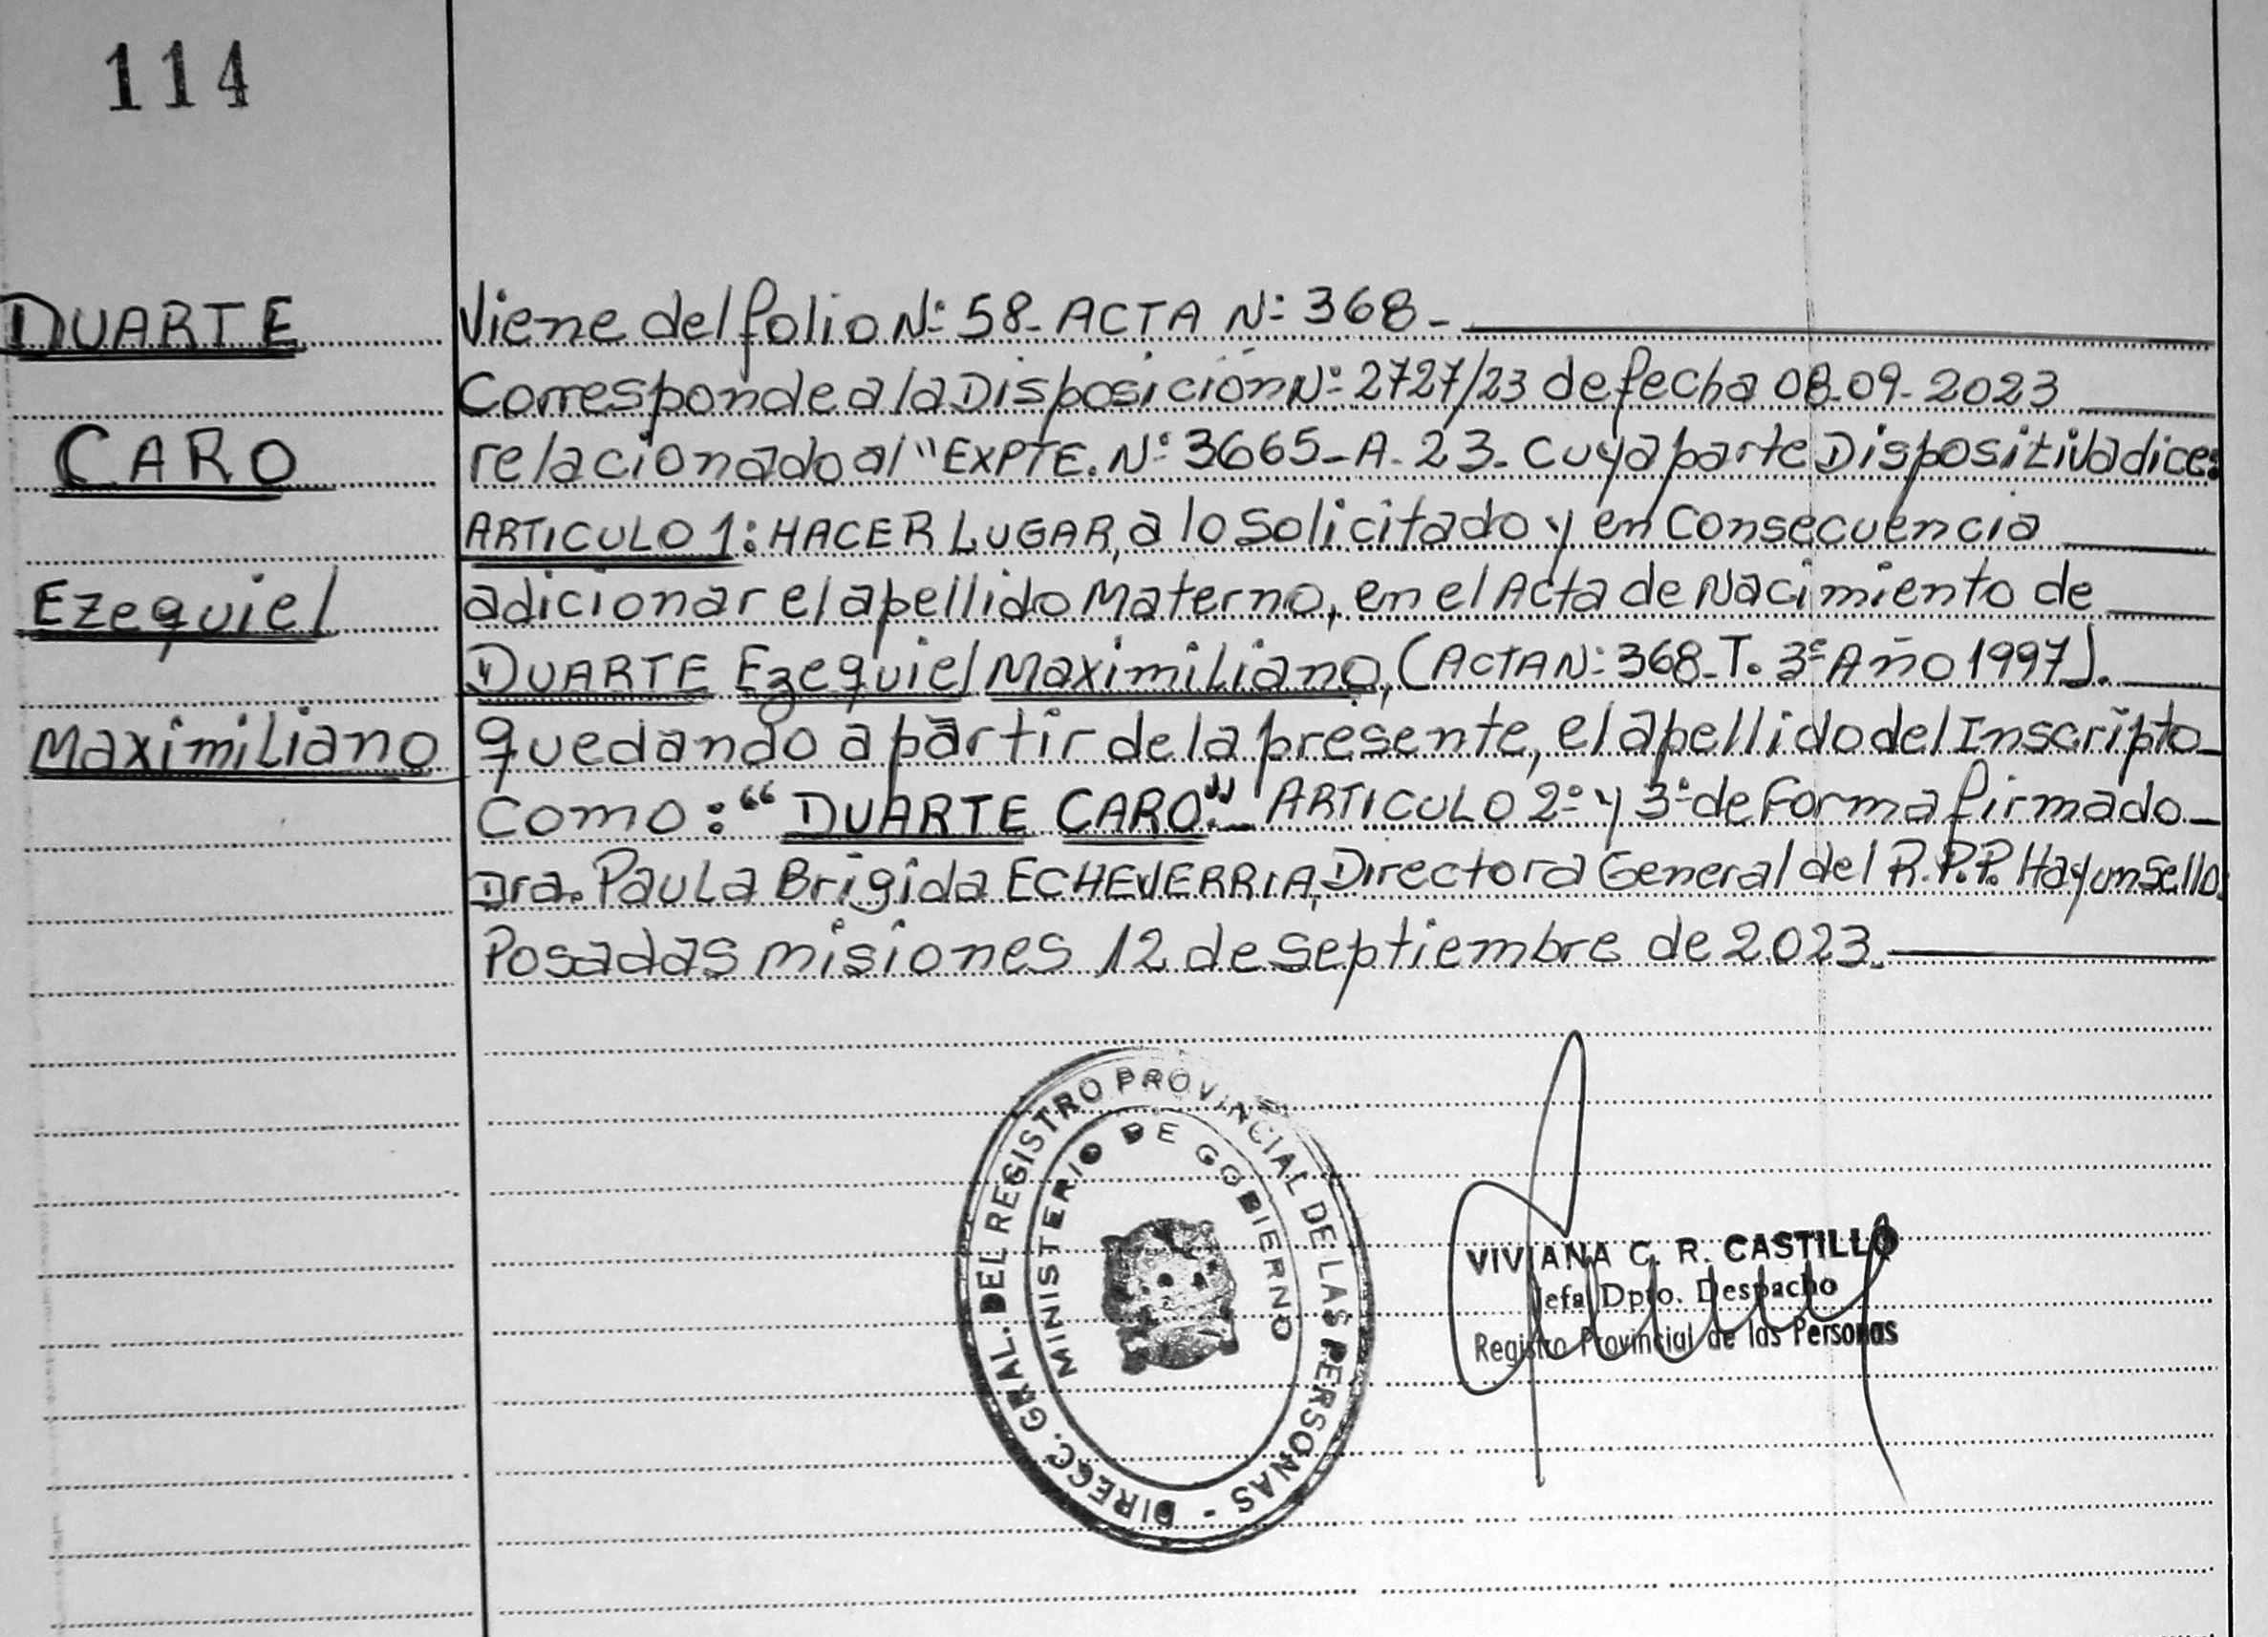 114
DUARTE
CARO
Ezequiel
Maximiliano
Viene del folio Nº: 58- ACTA Nº: 368-
Corresponde a la Disposición Nº: 2727/23 de fecha 08-09-2023
relacionado al "EXPTE. Nº: 3665-A-23- Cuya parte Dispositiva dice:
ARTICULO 1: HACER LUGAR, a lo solicitado y en Consecuencia
adicionar el apellido Materno, en el Acta de Nacimiento de
DUARTE Ezequiel Maximiliano, (ACTA N: 368-T. 3º Año 1997).
quedando a partir de la presente, el apellido del Inscripto
Como: "DUARTE CARO".- ARTICULO 2º y 3º de Forma firmado
Dra. Paula Brigida ECHEVERRIA, Directora General del R.P.P. Hay un Sello.
Posadas Misiones 12 de septiembre de 2023.
DIRECC. GRAL. DEL REGISTRO PROVINCIAL DE LAS PERSONAS -
MINISTERIO DE GOBIERNO
VIVIANA C. R. CASTILLO
Jefa Dpto. Despacho
Registro Provincial de las Personas